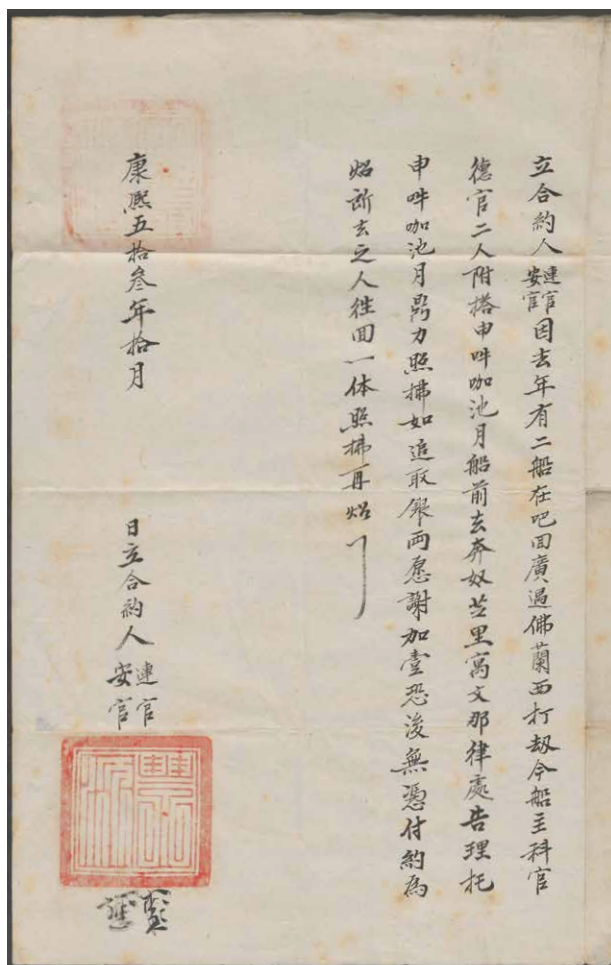 立合約人連官安官因去年有二船在吧回廣遇佛蘭西打刼今船主科官
德官二人附搭申吽咖池月船前去奔奴芝里窩文那律處告理托
申吽咖池月鼎力照拂如追取銀両愿謝加壹恐後無憑付約為
炤所去之人往回一体照拂再炤
康熙五拾叁年拾月 日立合約人連官安官